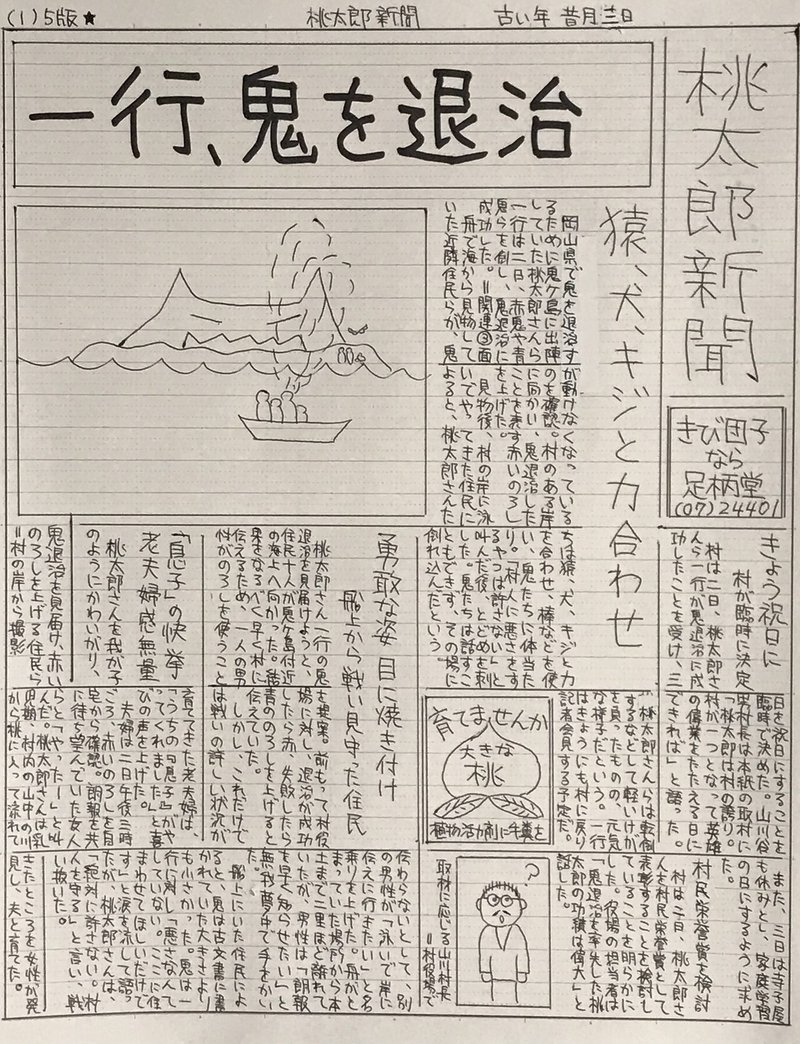 (1) 5版★
桃太郎新聞
古い年 昔月三日
桃太郎新聞
一行、鬼を退治
猿、犬、キジと力合わせ
岡山県で鬼を退治す
るために鬼ヶ島に出陣
していた桃太郎さんら
一行は二日、赤鬼や青
鬼らを倒し、鬼退治に
成功した。=関連③面
舟で海から見物して
いた近隣住民らが、鬼
が動けなくなっている
のを確認。村のある岸
に向かい、鬼退治した
ことを表す赤いのろし
を上げた。
見物後、村の岸に泳
いでやってきた住民に
よると、桃太郎さんた
ちは猿、犬、キジと力
を合わせ、棒などを使
い、鬼たちに体当た
り。「村人に悪さをす
るやつは許さない」と
叫んだ後、とどめを刺
した。鬼たちは話すこ
ともできず、その場に
倒れ込んだという。
桃太郎さんらは転倒
するなどして軽いけが
を負ったものの、元気
な様子だという。一行
はきょうにも村に戻り
記者会見する予定だ。
きび団子
なら
足柄堂
(07)24401
きょう祝日に
村が臨時に決定
村は二日、桃太郎さ
んら一行が鬼退治に成
功したことを受け、三
日を祝日にすることを
臨時で決めた。山川谷
男村長は本紙の取材に
「桃太郎は村の誇り。
村が一つとなって英雄
の偉業をたたえる日に
できれば」と語った。
また、三日は寺子屋
も休みとし、家庭学習
の日にするように求め
た。
村民栄誉賞を検討
村は二日、桃太郎さ
んを村民栄誉賞として
表彰することを検討し
ていることを明らかに
した。役場の担当者は
「鬼退治を率先した桃
太郎の功績は偉大」と
話した。
?
取材に応じる山川村長
=村役場で
育てませんか
大きな
桃
植物活力剤に牛糞を
勇敢な姿 目に焼き付け
船上から戦い見守った住民
桃太郎さん一行の鬼
退治を見届けようと、
住民十人が鬼ケ島付近
の海上へ向かった。結
果をなるべく早く村に
伝えるため、一人の男
性がのろしを使うこと
を提案。前もって村役
場に対し、退治が成功
したら赤、失敗したら
青ののろしを上げると
伝えていた。
しかし、これだけで
は戦いの詳しい状況が
伝わらないとして、別
の男性が「泳いで岸に
伝えに行きたい」と名
乗りを上げた。舟がと
まっていた場所から本
土まで二里ほど離れて
いたが、男性は「朗報
を早く知らせたい」と
無我夢中で手をかい
た。
船上にいた住民によ
ると、鬼は古文書に書
かれていた大きさより
も小さかった。鬼は一
行に対し「悪さなんて
していない。ここに住
まわせてほしいだけで
す」と涙を流して語っ
たが、桃太郎さんは、
「絶対に許さない。村
人を守る」と言い、戦
い抜いた。
「息子」の快挙
老夫婦感無量
桃太郎さんを我が子
のようにかわいがり、
育ててきた老夫婦は、
「うちの『息子』がや
ってくれました」と喜
びの声を上げた。
夫婦は二日午後三時
ごろ、赤いのろしを自
宅から確認。朗報を共
に待ち望んでいた友人
らと「やったー」と叫
んだ。桃太郎さんは乳
児期、村内の山中の川
から桃に入って流れて
きたところを女性が発
見し、夫と育てた。
鬼退治を見届け、赤い
のろしを上げる住民ら
=村の岸から撮影